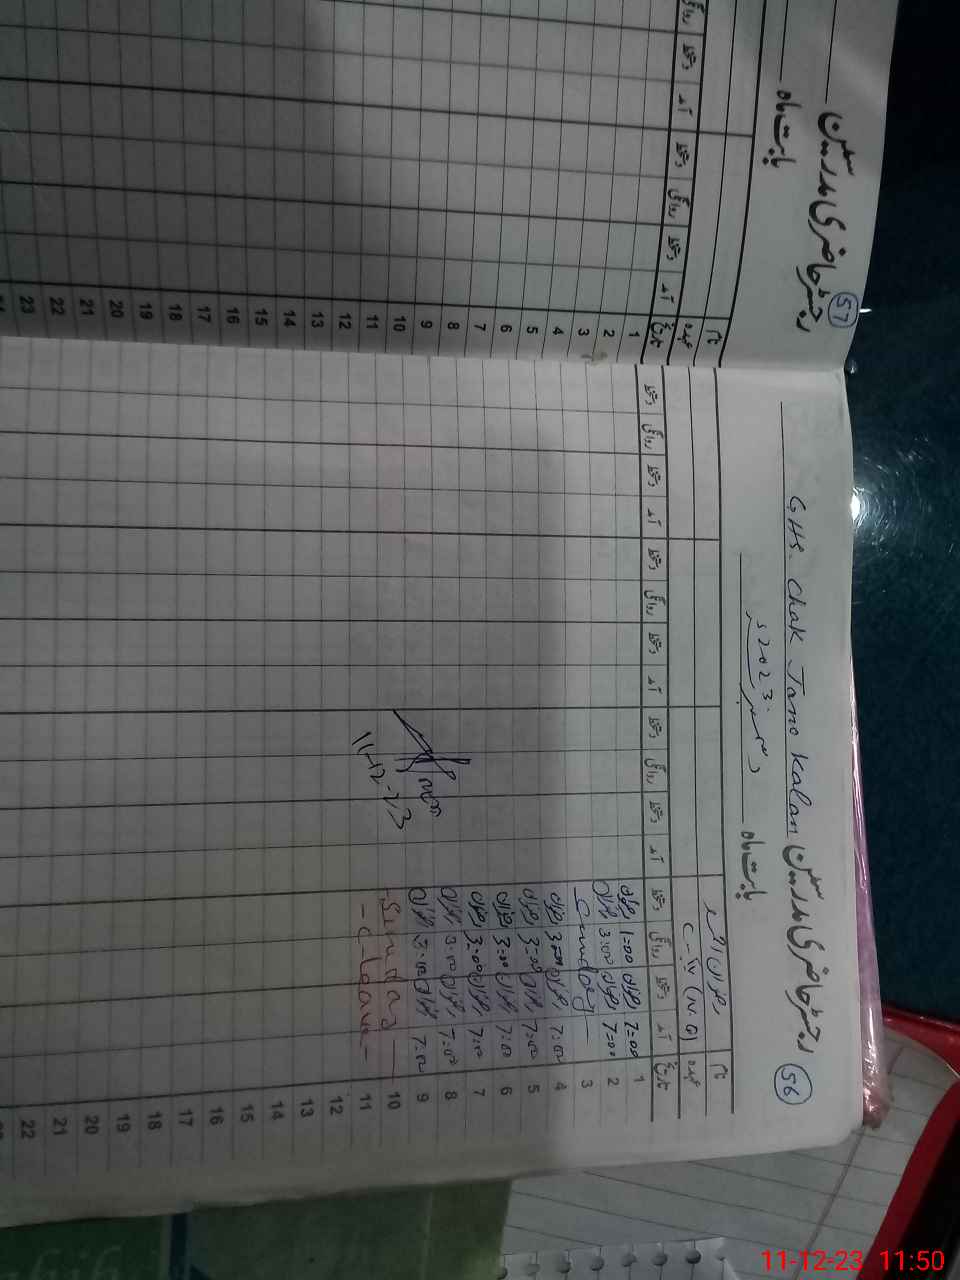 56
رجسٹر حاضری مدرسین GHS. Chak Jano Kalan
بابت ماہ دسمبر 2023ء
نام
عہدہ C-IV (N.Q)
تاریخ آمد دستخط روانگی دستخط آمد دستخط روانگی دستخط آمد دستخط روانگی دستخط آمد دستخط روانگی دستخط
1 7=00 1=00
2 7=00 3:00
3 Sunday
4 7:00 3:00
5 7:00 3:00
6 7:00 3:00
7 7:00 3:00
8 7:00 3:00
9 7:00 3:00
10 Sunday
11 -C leave-
12
13
14
15
16
17
18
19
20
21
22
11-12-23
57
رجسٹر حاضری مدرسین
بابت ماہ
نام
عہدہ
تاریخ آمد دستخط روانگی دستخط آمد دستخط روانگی
1
2
3
4
5
6
7
8
9
10
11
12
13
14
15
16
17
18
19
20
21
22
23
11-12-23 11:50